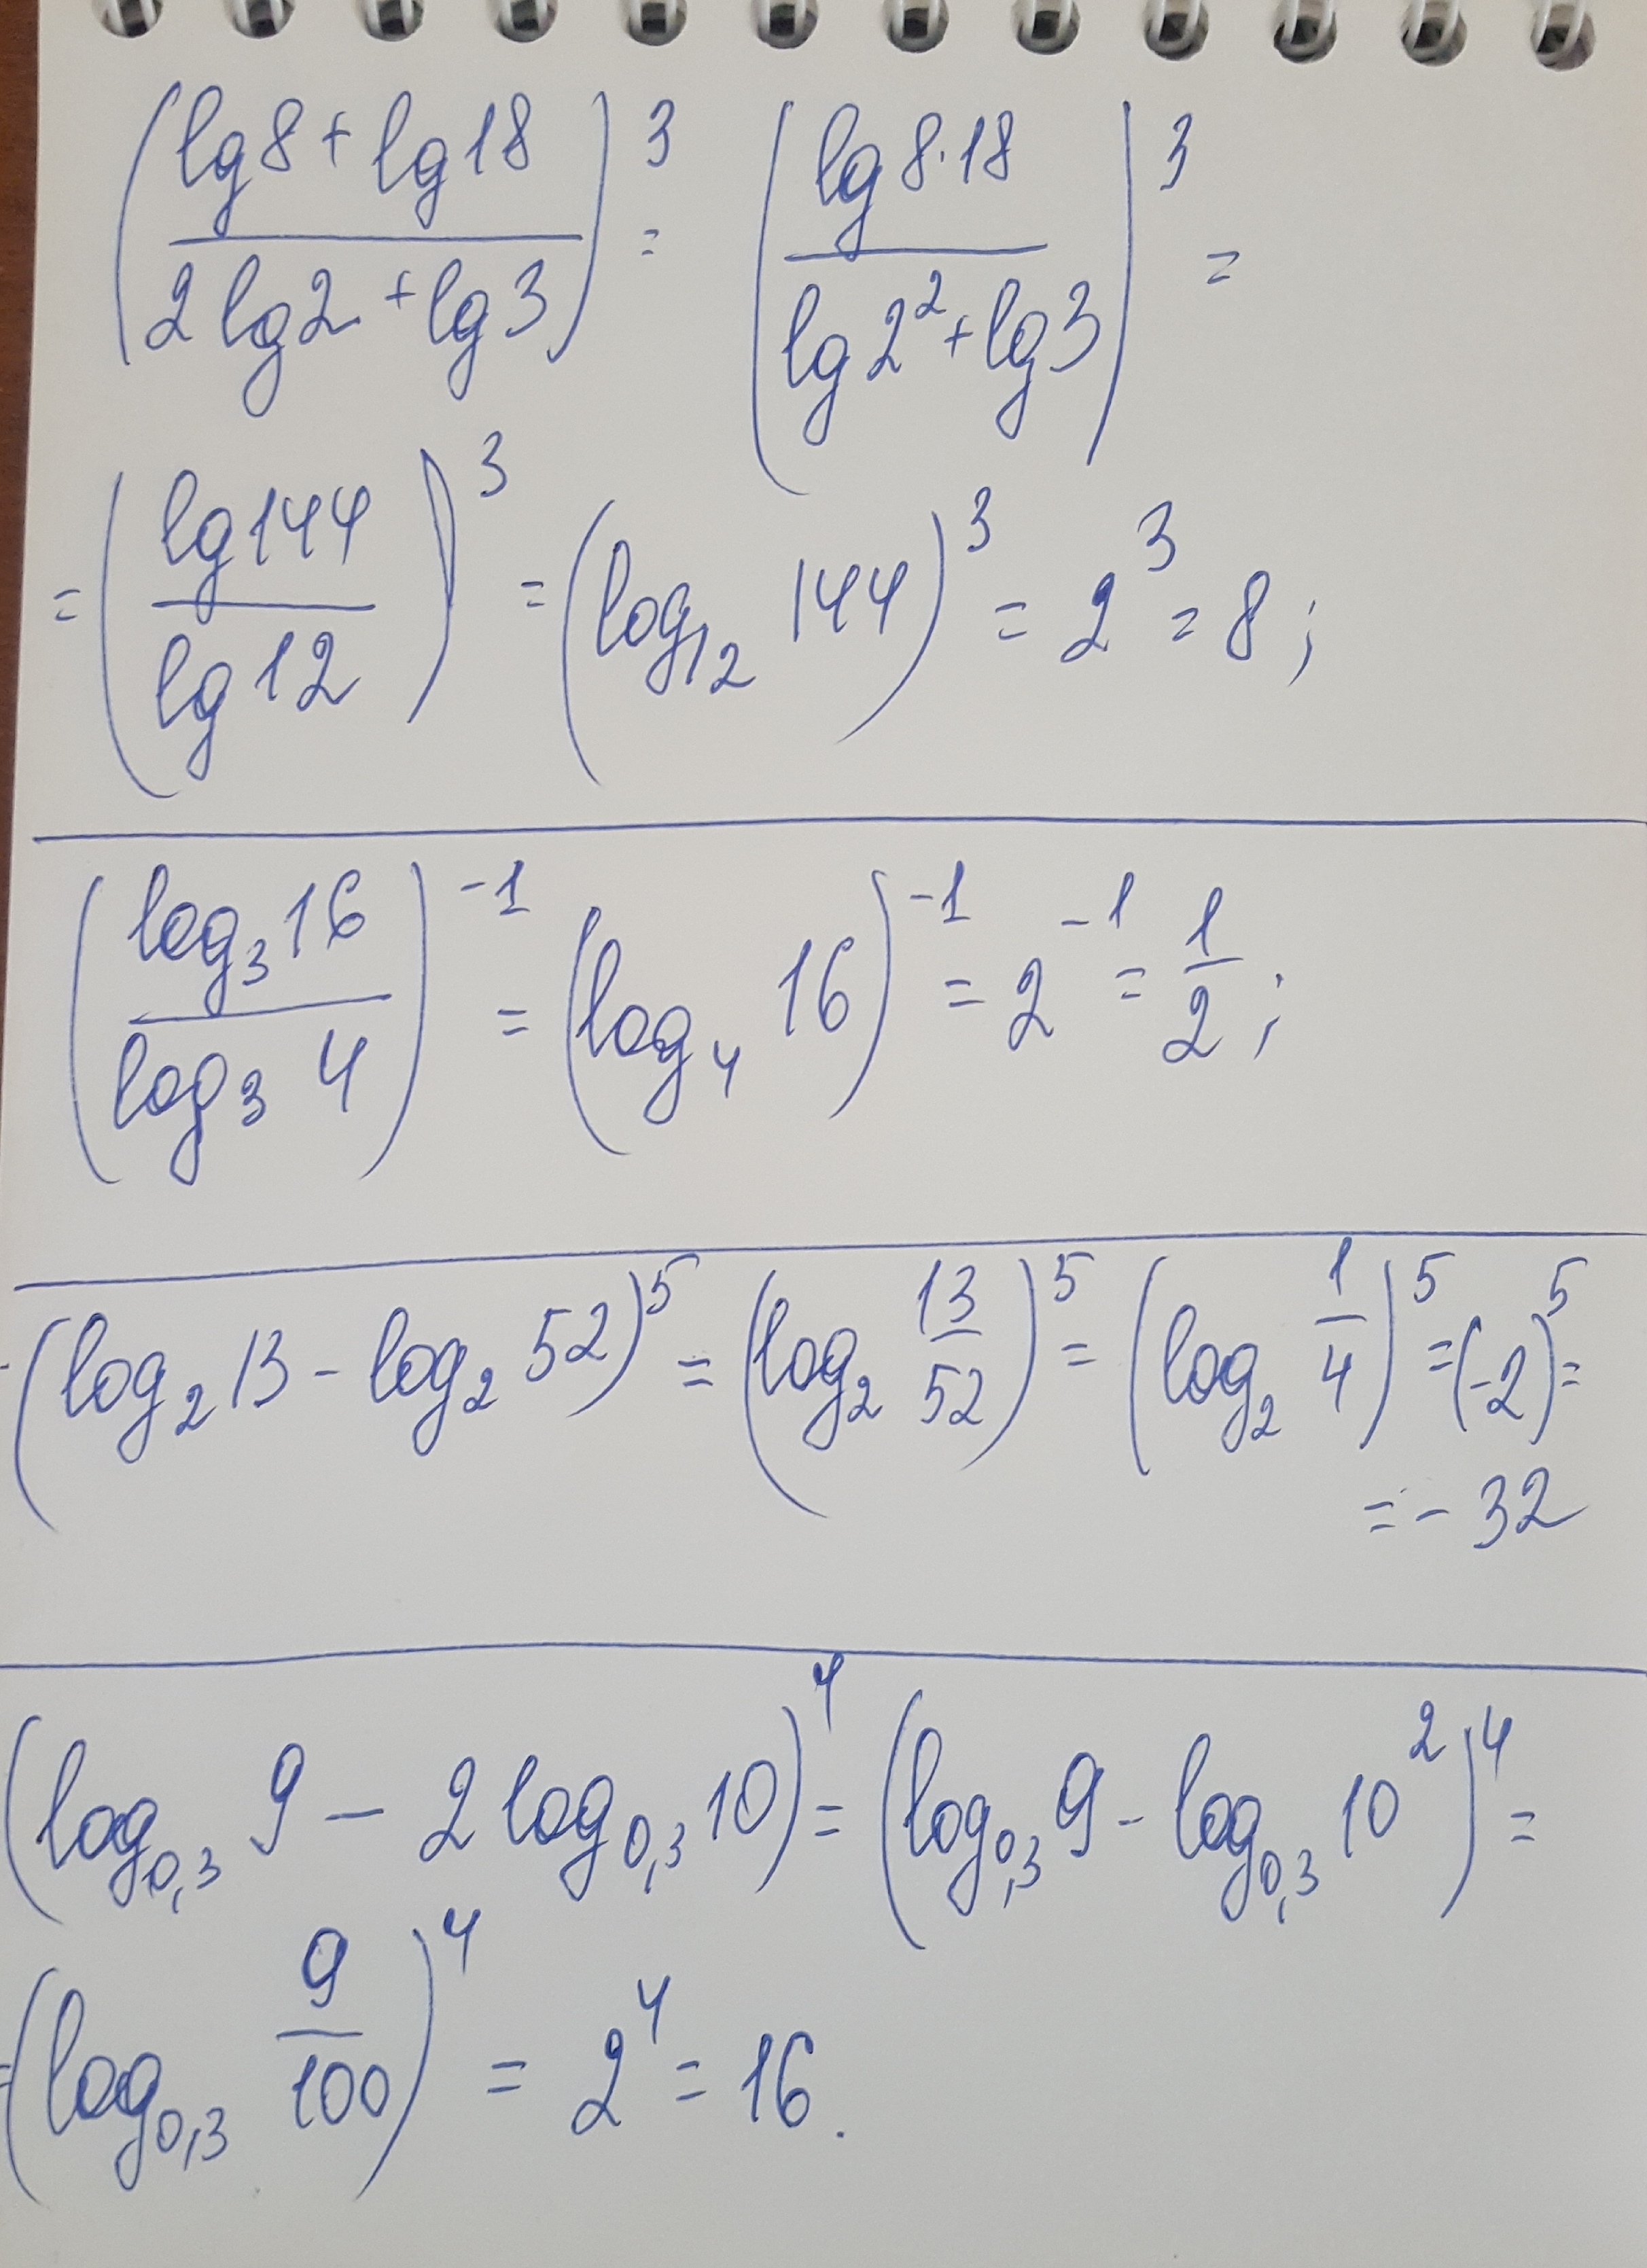 (lg8 + lg18 / 2lg2 + lg3)³ = (lg8·18 / lg2² + lg3)³ =
= (lg144 / lg12)³ = (log₁₂ 144)³ = 2³ = 8;
(log₃16 / log₃ 4)⁻¹ = (log₄ 16)⁻¹ = 2⁻¹ = 1/2;
(log₂13 - log₂ 52)⁵ = (log₂ 13/52)⁵ = (log₂ 1/4)⁵ = (-2)⁵ =
= - 32
(log₀,₃ 9 - 2 log₀,₃ 10)⁴ = (log₀,₃ 9 - log₀,₃ 10²)⁴ =
= (log₀,₃ 9/100)⁴ = 2⁴ = 16.